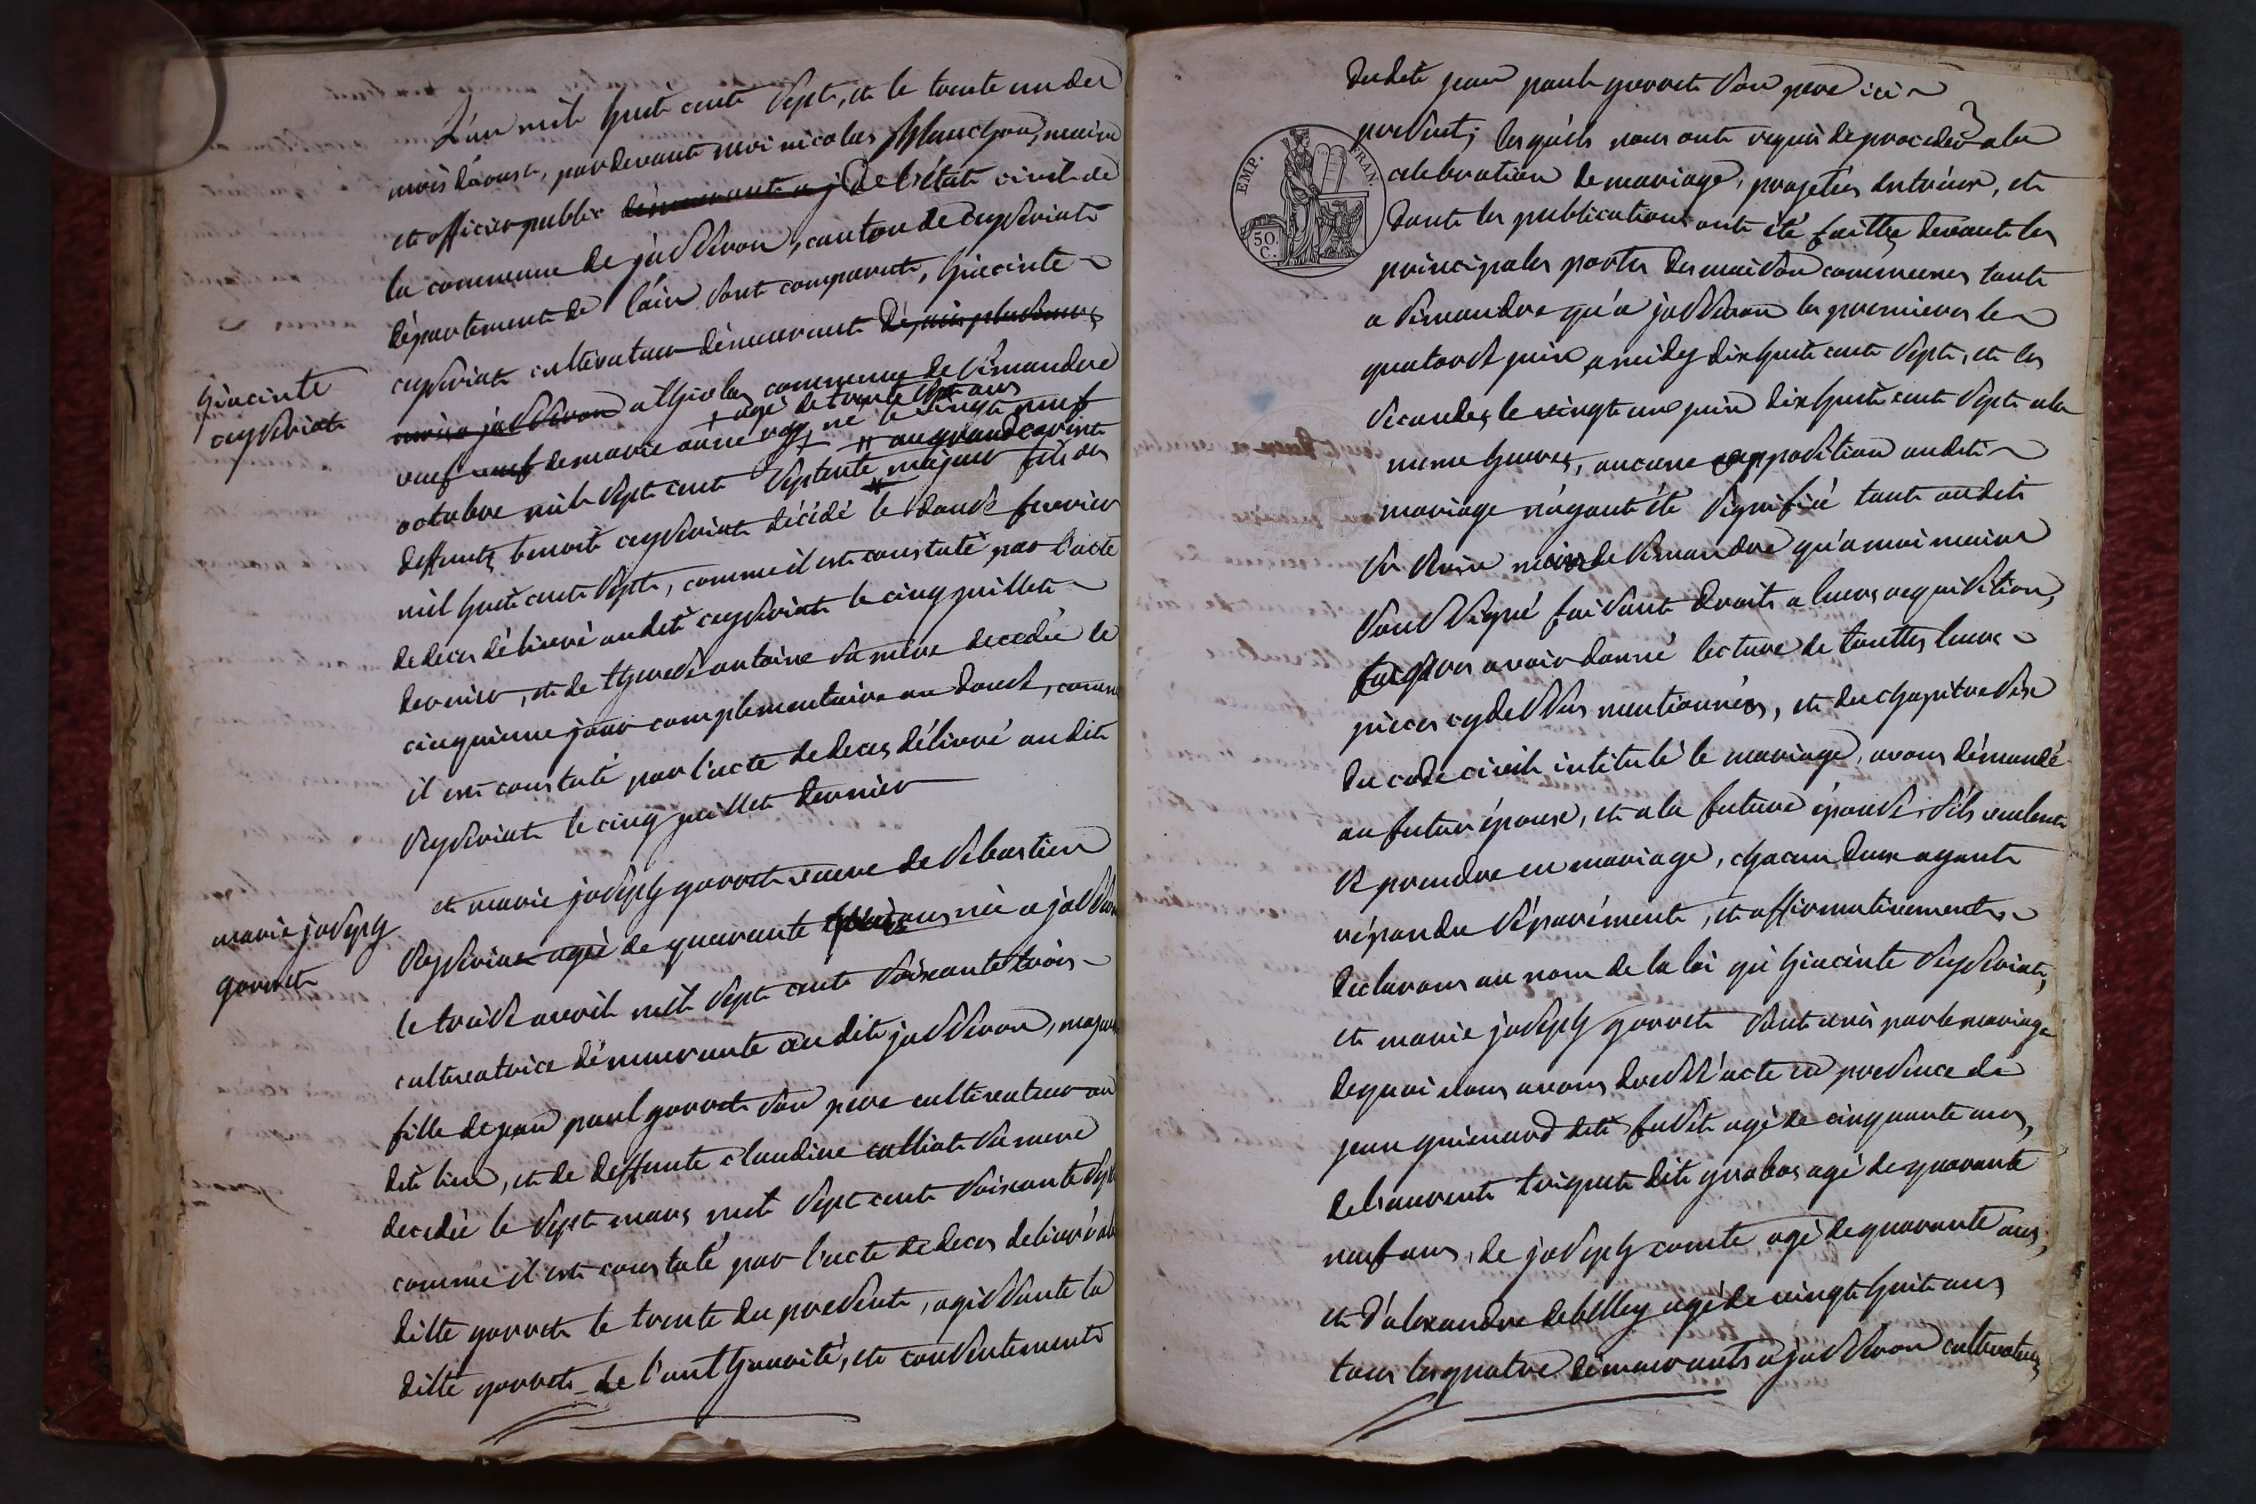 L'an mil huit cents Sept, et le trente un du
mois d'aoust, pardevant moi nicolas planchon, maire
et officier public demeurante a j de l'état civil de
la commune de jasseron, canton de ceyseriat
département de l'ain sont comparents, hiacinte
ceyseriat cultivateur démeurant dépuis plusieurs
mois a jasseron commune de simandre
+ agé de trente sept ans
veuf de marie anne né le vingt neuf
# au grand corent
octobre mil sept cent Septente majeur fils des
deffunts benoit ceyseriat décédé le douse fevrier
mil huit cents Sept, comme il est constaté par l'acte
de deces délivré audit ceyseriat le cinq juillet
dernier, et de therese antoine sa mére decedée le
cinquieme jour complementaire an douse, comme
il est constaté par l'acte de deces délivré au dit
Seyseriat le cinq juillet dernier
hiacinte
ceyseriat
et marie joseph gorret veuve de sebastien
agé de quarante ans née a jasseron
le treise avril mil sept cents soixante trois
cultivatrice démeurante au dit jasseron, majeure
fille de jean paul gorret son pere cultivateur au
dit lieu, et de deffunte claudine calliat sa mere
decedée le sept mars mil sept cents soixante sept
comme il est constaté par l'acte de deces delivré a la
ditte gorret le trente du present, agissante la
ditte gorret de l'authorité, et consentement
marie joseph
gorret
dudit jean paul gorret son pere ici
present; lesquels nous ont requis de proceder a la
celebration de mariage, projetés entréux, et
dont les publications ont été faittes devant les
principales portes des maison communes tant
a simandre qu'a jasseron les premieres le
quatorse juin a midy dix huit cent sept, et les
secondes le vingt une juin dix huit cent sept a la
meme heures, aucune opposition audit
mariage n'ayant été signifié tant audit
maire de simandre qu'a moi maire
Soussigné faisant droit a leurs requisition,
apres avoir donné lecture de touttes leurs
pieces cy dessus mentionnées, et du chapitre six
du code civil intitulé le mariage, avons démandé
au futur époux, et a la future épouse s'ils veulent
se prendre en mariage, chacun deux ayant
répondu séparémente, et affirmativement
declarons au nom de la loi que hiacinte Seyseriat,
et marie joseph gorret sont unis par le mariage
dequoi nous avons dressé l'acte en presence de
jean guienard dit agé de cinquante ans,
de laurent triquet dit grabos agé de quarante
neuf ans, de joseph comte agé de quarante ans,
et d'alexandre debelley agé de vingt huit ans
tous les quatre démeurants a jasseron cultivateurs
EMP. FRAN.
50.
C.